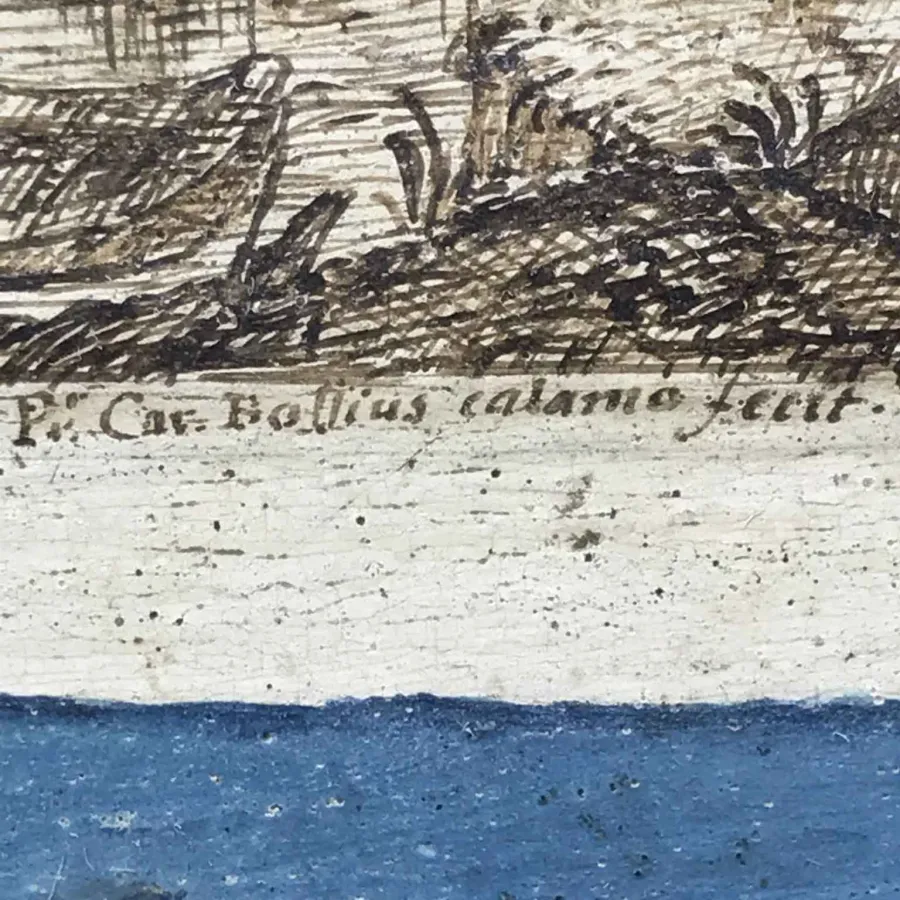 P: Car. Boſſius calamo fecit.